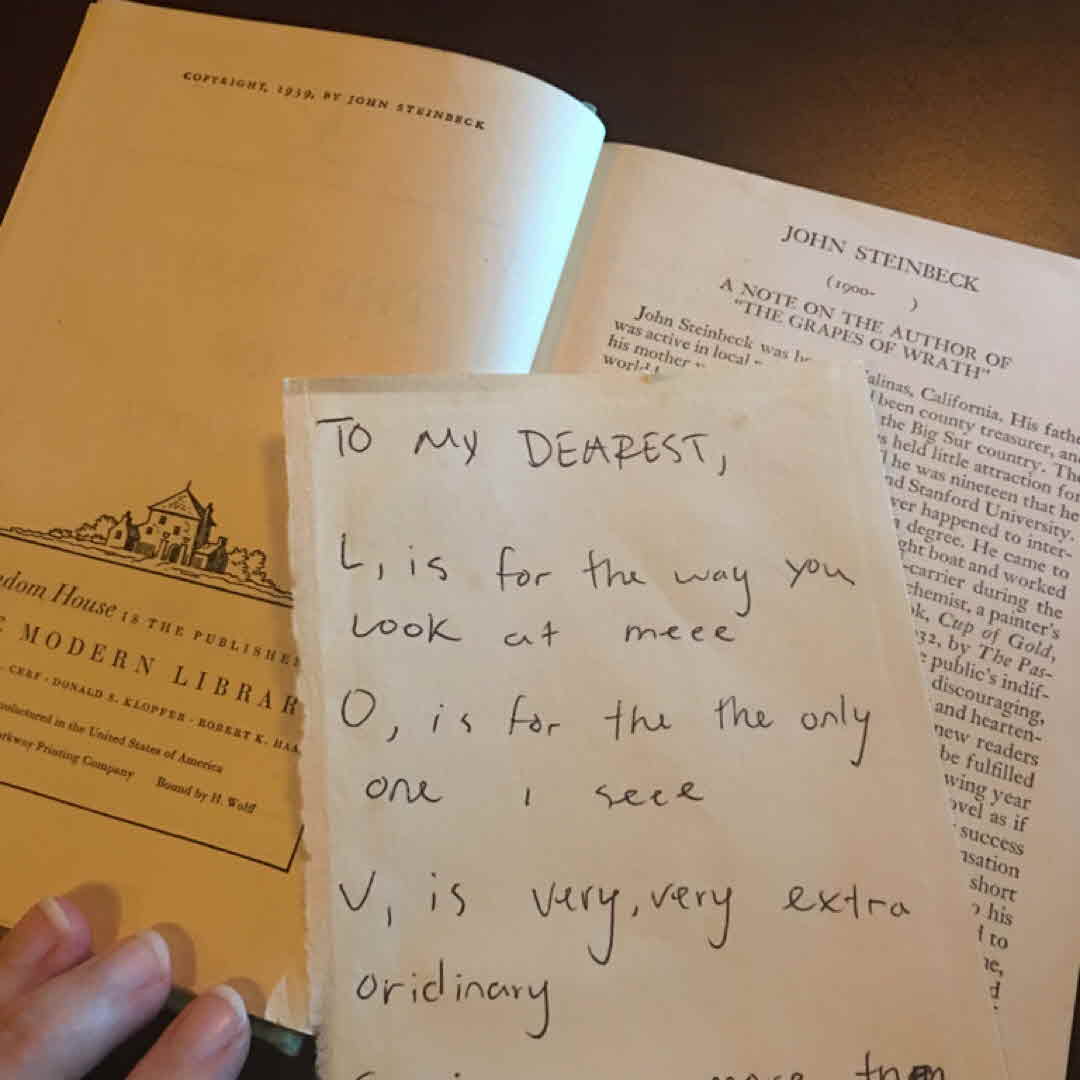 COPYRIGHT, 1939, BY JOHN STEINBECK
House IS THE PUBLISHER
MODERN LIBRAR
CERF · DONALD S. KLOPFER · ROBERT K. HAA
in the United States of America
Printing Company Bound by H. Wolff
JOHN STEINBECK
(1900- )
A NOTE ON THE AUTHOR OF
"THE GRAPES OF WRATH"
John Steinbeck was
was active in local
his mother
alinas, California. His fathe
been county treasurer, and
the Big Sur country. The
held little attraction for
he was nineteen that he
nd Stanford University.
ver happened to inter-
degree. He came to
ght boat and worked
-carrier during the
chemist, a painter's
Cup of Gold,
32, by The Pas-
public's indif-
discouraging,
and hearten-
new readers
be fulfilled
wing year
ovel as if
success
nsation
short
his
to
TO MY DEAREST,
L, is for the way you
look at meee
O, is for the the only
one i seee
V, is very, very extra
oridinary
more than